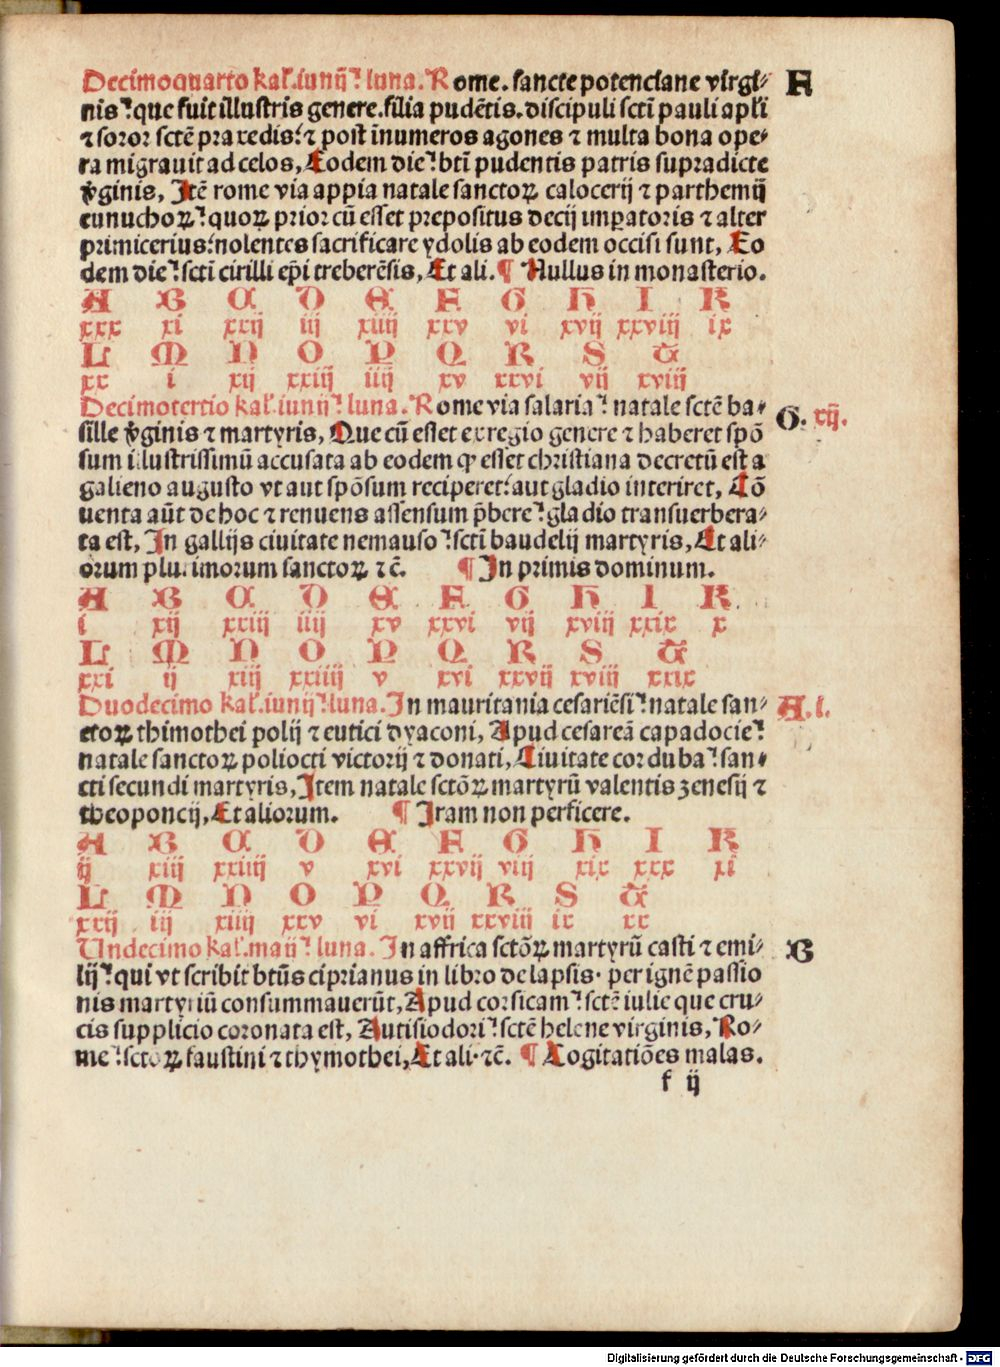 Decimoquarto kal'.iunij! luna. Rome. sancte potenciane virgi- F
nis! que fuit illustris genere. filia pudētis. discipuli sctī pauli apl'i
⁊ soror sctē praxedis! ⁊ post īnumeros agones ⁊ multa bona ope-
ra migrauit ad celos, Eodem die! btī pudentis patris supradicte
v̾ginis, Itē rome via appia natale sanctoꝝ calocerij ⁊ parthemij
eunuchoꝝ! quoꝝ prior cū esset prepositus decij imperatoris ⁊ alter
primicerius! nolentes sacrificare ydolis ab eodem occisi sunt, Eo
dem die! sctī cirilli epī treberēsis, Et ali. ¶ Nullus in monasterio.
A B C D E F G H I K
xxx xi xxij iij xiiij xxv vi xvij xxviij ix
L M N O P Q R S T
xx i xij xxiij iiij xv xxvi vij xviij
Decimotertio kal'.iunij! luna. Rome via salaria! natale sctē ba- G. xij.
sille v̾ginis ⁊ martyris, Que cū esset ex regio genere ⁊ haberet spō
sum illustrissimū accusata ab eodem ꝙ esset christiana decretū est a
galieno augusto vt aut spōsum reciperet! aut gladio interiret, Cō
uenta aūt de hoc ⁊ renuens assensum p̄bere! gladio transuerbera-
ta est, In gallijs ciuitate nemauso! sctī baudelij martyris, Et ali-
orum plurimorum sanctoꝝ ⁊c̄. ¶ In primis dominum.
A B C D E F G H I K
i xij xxiij iiij xv xxvi vij xviij xxix x
L M N O P Q R S T
xxi ij xiij xxiiij v xvi xxvij xviij xxix
Duodecimo kal'.iunij! luna. In mauritania cesariēsi! natale san- A. i.
ctoꝝ thimothei polij ⁊ eutici dyaconi, Apud cesareā capadocie!
natale sanctoꝝ poliocti victorij ⁊ donati, Ciuitate corduba! san-
cti secundi martyris, Item natale sctōꝝ martyrū valentis zenesij ⁊
theoponcij, Et aliorum. ¶ Iram non perficere.
A B C D E F G H I K
ij xiij xxiiij v xvi xxvij viij xix xxx xi
L M N O P Q R S T
xxij iij xiiij xxv vi xvij xxviij ix xx
Undecimo kal'.maij! luna. In affrica sctōꝝ martyrū casti ⁊ emi- B
lij! qui vt scribit btūs ciprianus in libro de lapsis. per ignē passio
nis martyriū consummauerūt, Apud corsicam! sctē iulie que cru-
cis supplicio coronata est, Autisiodori! sctē helene virginis, Ro-
me! sctoꝝ faustini ⁊ thymothei, Et ali. ⁊c̄. ¶ Cogitatiōes malas.
f ij
Digitalisierung gefördert durch die Deutsche Forschungsgemeinschaft - DFG